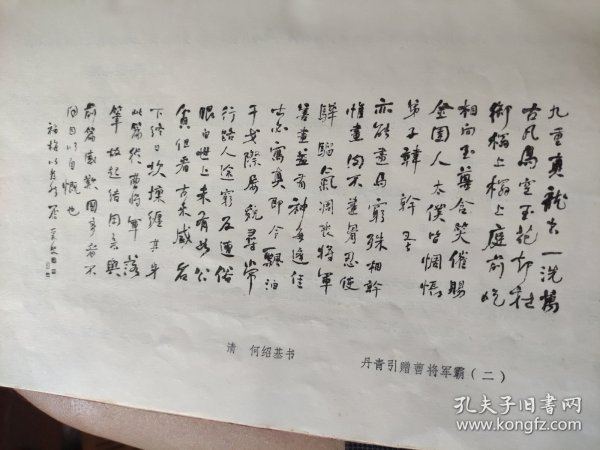 九重真龍出一洗萬
古凡馬空玉花却在
御榻上榻上庭前屹
相向至尊含笑催賜
金圉人太僕皆惆悵
弟子韓幹早
亦能畫馬窮殊相幹
惟畫肉不畫骨忍使
驊騮氣凋喪將軍
善畫盖有神每逢佳
士亦寫真即今飄泊
干戈際屢貌尋常
行路人途窮反遭俗
眼白世上未有如公
貧但看古来盛名
下終日坎壈纏其身
此篇從曹將軍落
筆故起结用意與
前篇感歎國事者不
同因以自慨也
清 何绍基书
丹青引赠曹将军霸（二）
孔夫子旧书网
www.kongfz.com